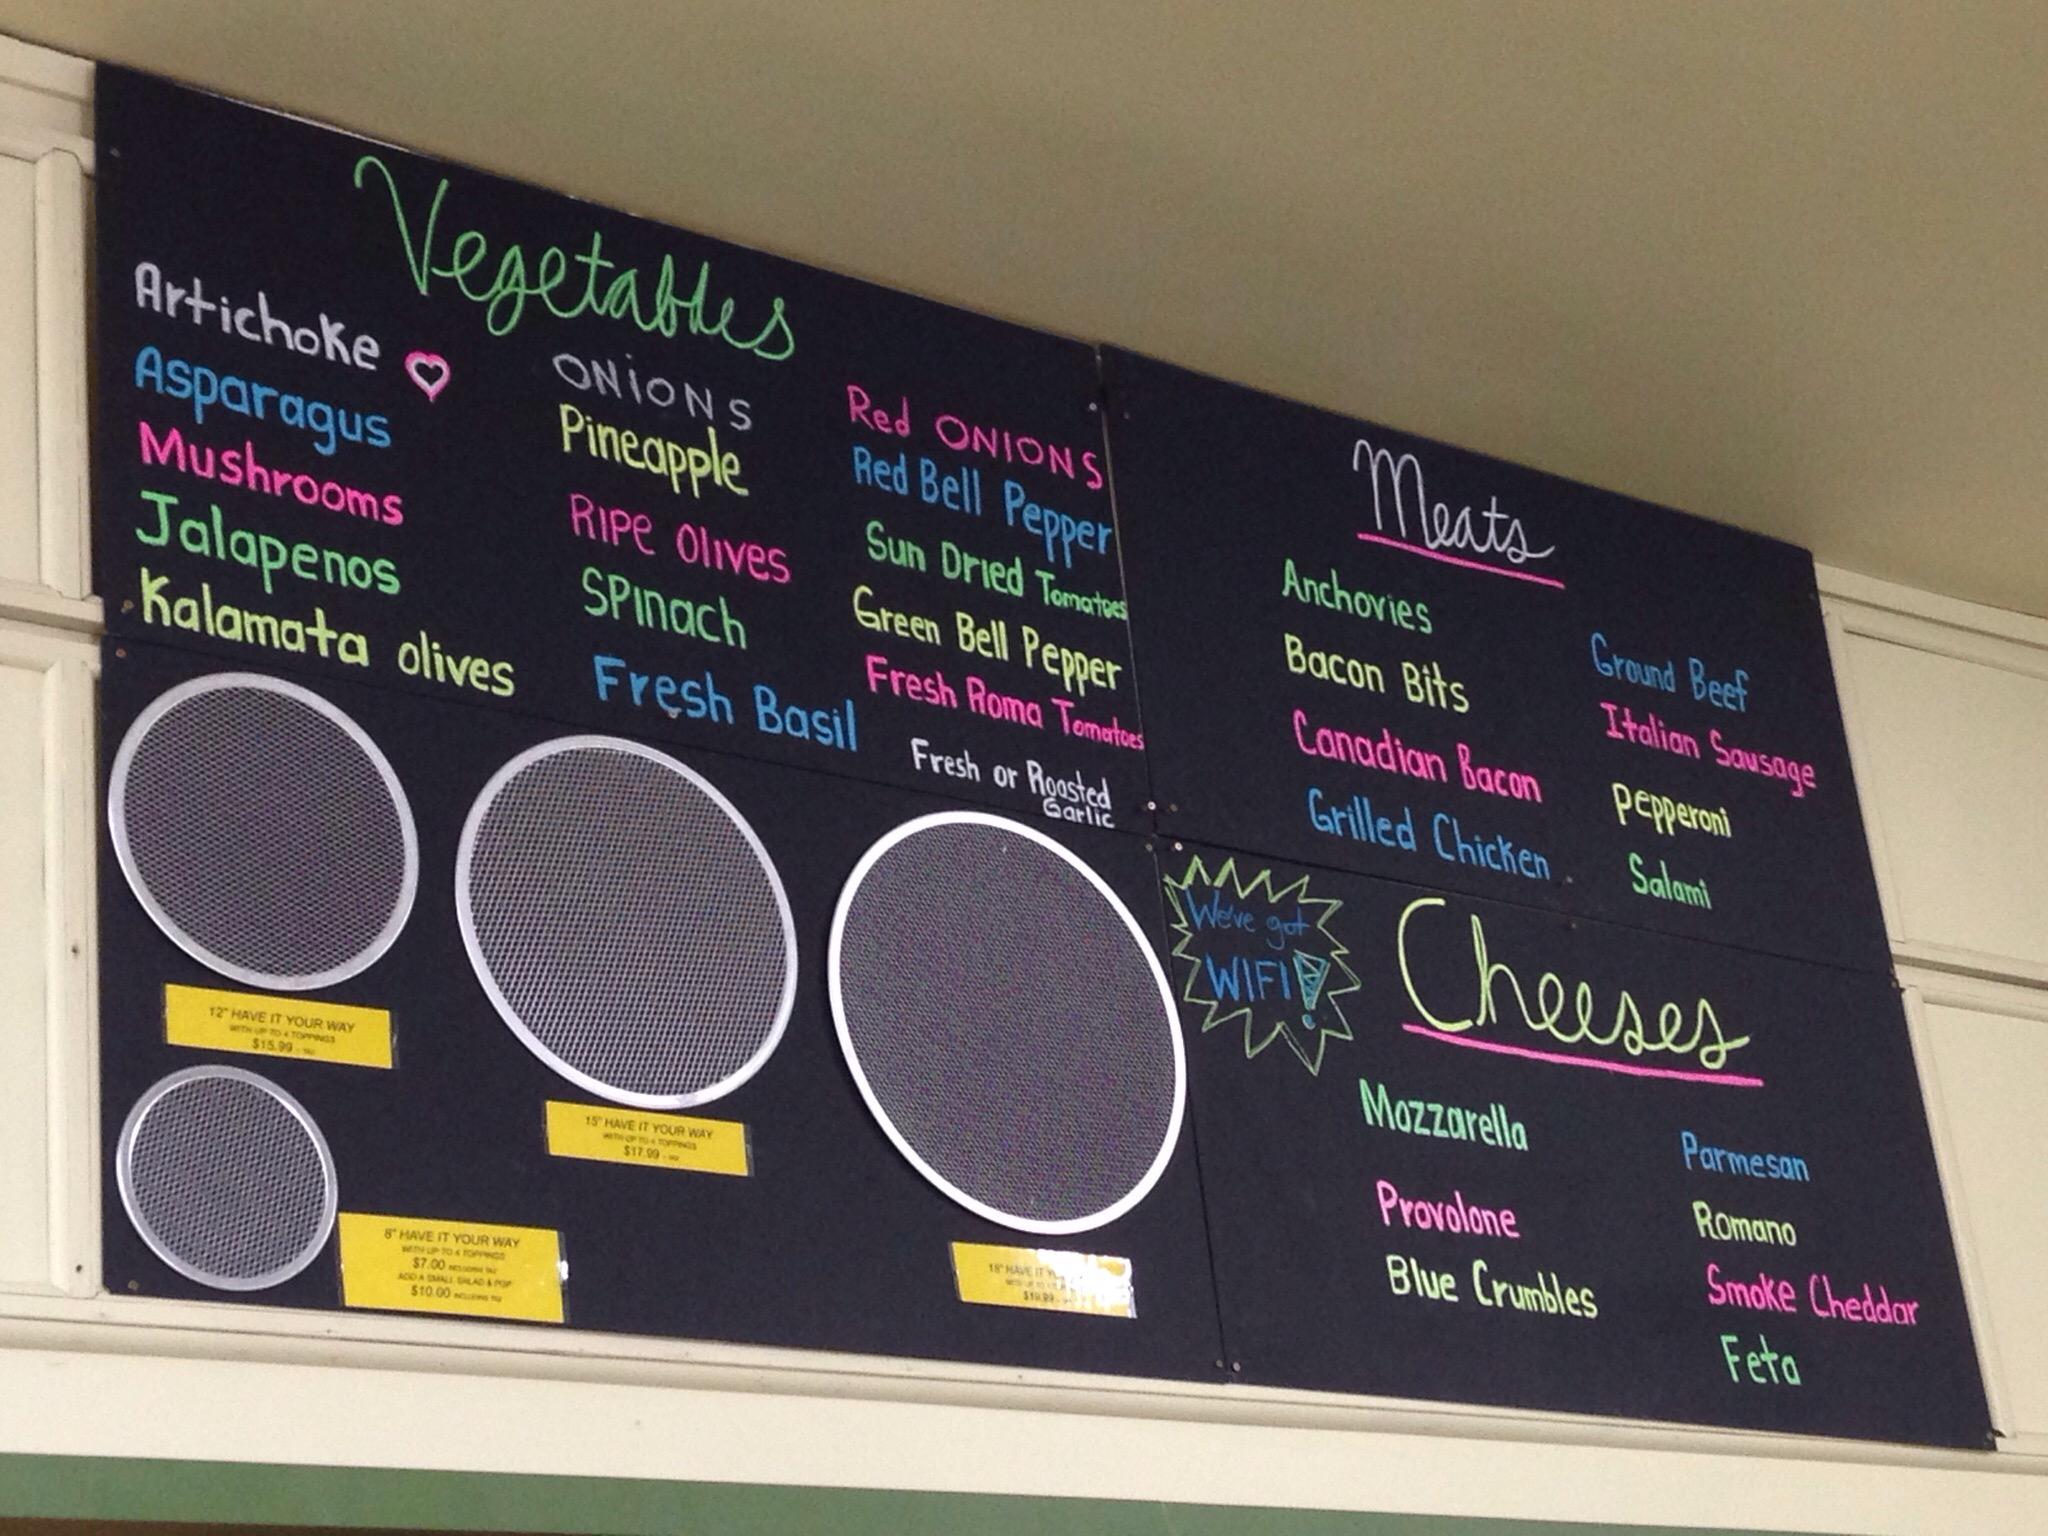 Vegetables
Artichoke
Asparagus
Mushrooms
Jalapenos
Kalamata olives
ONIONS
Pineapple
RIPE Olives
SPInach
Fresh Basil
Red ONIONS
Red Bell Pepper
Sun Dried Tomatoes
Green Bell Pepper
Fresh Roma Tomatoes
Fresh or Roasted
Garlic
12" HAVE IT YOUR WAY
WITH UP TO 4 TOPPINGS
$15.99 + TAX
15" HAVE IT YOUR WAY
WITH UP TO 4 TOPPINGS
$17.99 + TAX
8" HAVE IT YOUR WAY
WITH UP TO 4 TOPPINGS
$7.00 INCLUDING TAX
ADD A SMALL SALAD & POP
$10.00 INCLUDING TAX
18" HAVE IT
WITH UP TO
$19.99
Meats
Anchovies
Bacon Bits
Canadian Bacon
Grilled Chicken
Ground Beef
Italian Sausage
Pepperoni
Salami
We've got
WIFI!
Cheeses
Mozzarella
Provolone
Blue Crumbles
Parmesan
Romano
Smoke Cheddar
Feta